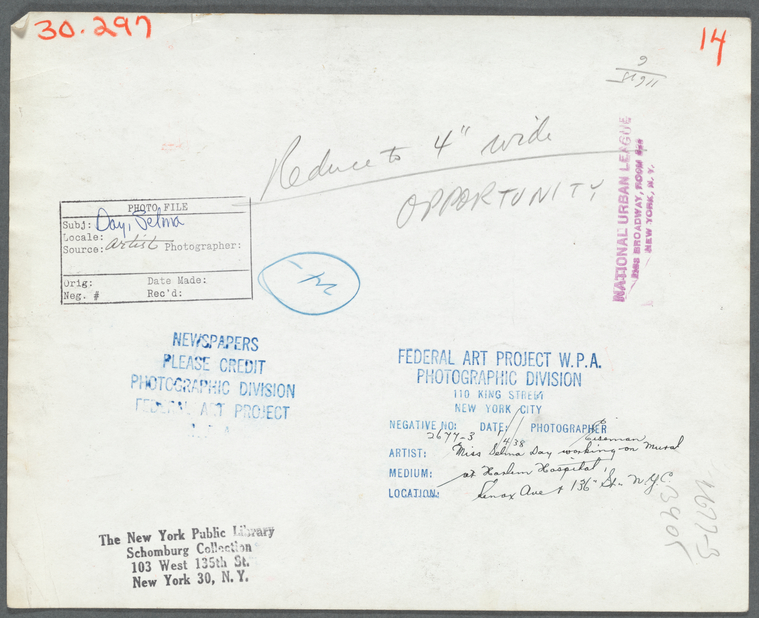 30.297
14
9
Reduce to 4" wide
OPPORTUNITY
NATIONAL URBAN LEAGUE
BROADWAY, ROOM
NEW YORK, N. Y.
PHOTO FILE
Subj: Day, Selma
Locale:
Source: artist Photographer:
Orig: Date Made:
Neg. # Rec'd:
NEWSPAPERS
PLEASE CREDIT
PHOTOGRAPHIC DIVISION
FEDERAL ART PROJECT
FEDERAL ART PROJECT W.P.A.
PHOTOGRAPHIC DIVISION
110 KING STREET
NEW YORK CITY
NEGATIVE NO: DATE: PHOTOGRAPHER
2677-3 1/4/38 Eiseman
ARTIST: Miss Selma Day working on Mural
MEDIUM: at Harlem Hospital
LOCATION: Lenox Ave & 136" St. N.Y.C.
2677-3
3405
The New York Public Library
Schomburg Collection
103 West 135th St.
New York 30, N. Y.